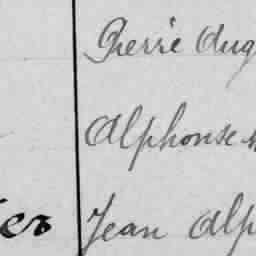 Pierre Aug
Alphonse M
Jean Alp